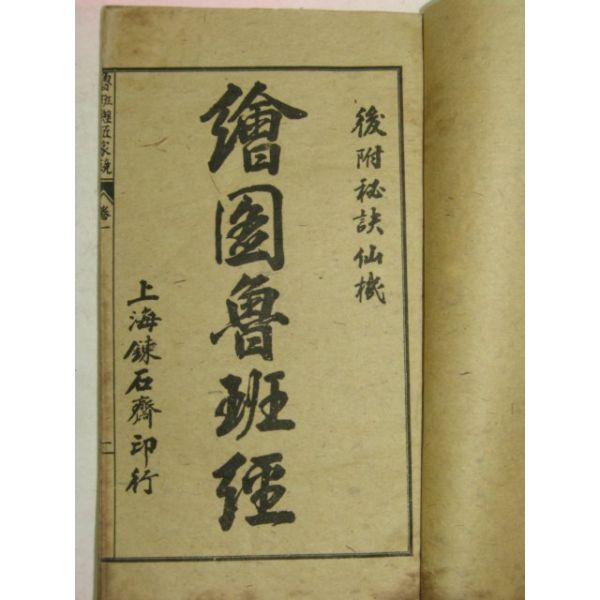 後附秘訣仙機
繪圖魯班經
上海鍊石齋印行
魯班經匠家鏡
卷一
二